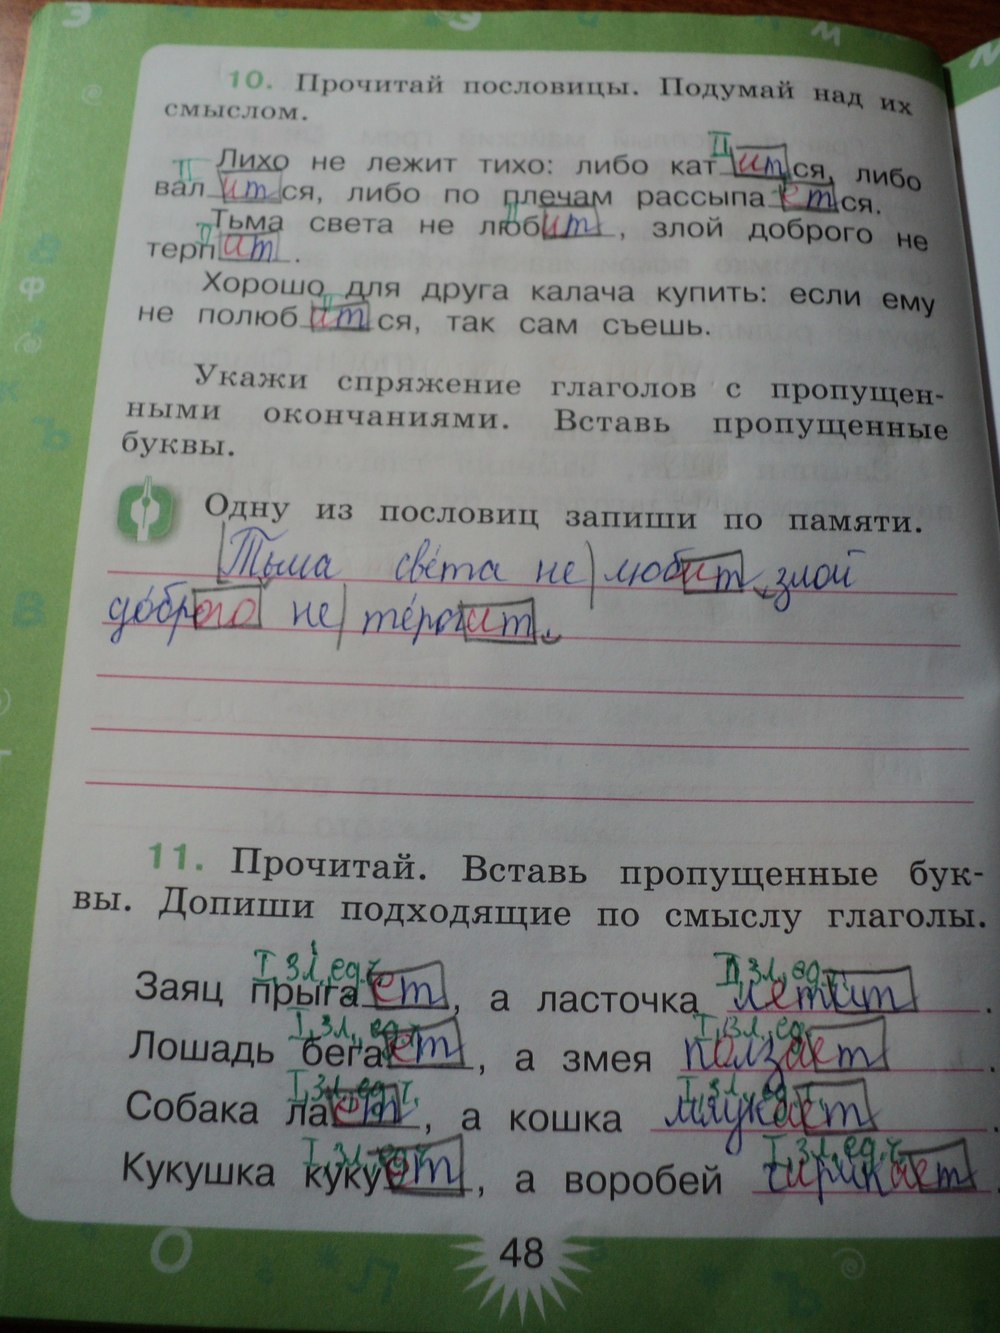 10. Прочитай пословицы. Подумай над их
смыслом.
II
Лихо не лежит тихо: либо катится, либо
II
валится, либо по плечам рассыпается.
II
Тьма света не любит, злой доброго не
II
терпит.
Хорошо для друга калача купить: если ему
II
не полюбится, так сам съешь.
Укажи спряжение глаголов с пропущен-
ными окончаниями. Вставь пропущенные
буквы.
Одну из пословиц запиши по памяти.
Тьма света не любит, злой
доброго не терпит.
11. Прочитай. Вставь пропущенные бук-
вы. Допиши подходящие по смыслу глаголы.
I, 3л., ед.ч. II, 3л., ед.ч.
Заяц прыгает, а ласточка летит.
I, 3л., ед.ч. I, 3л., ед.
Лошадь бегает, а змея ползает.
I, 3л., ед.ч. I, 3л., ед.ч.
Собака лает, а кошка мяукает.
I, 3л., ед.ч. I, 3л., ед.ч.
Кукушка кукует, а воробей чирикает.
48